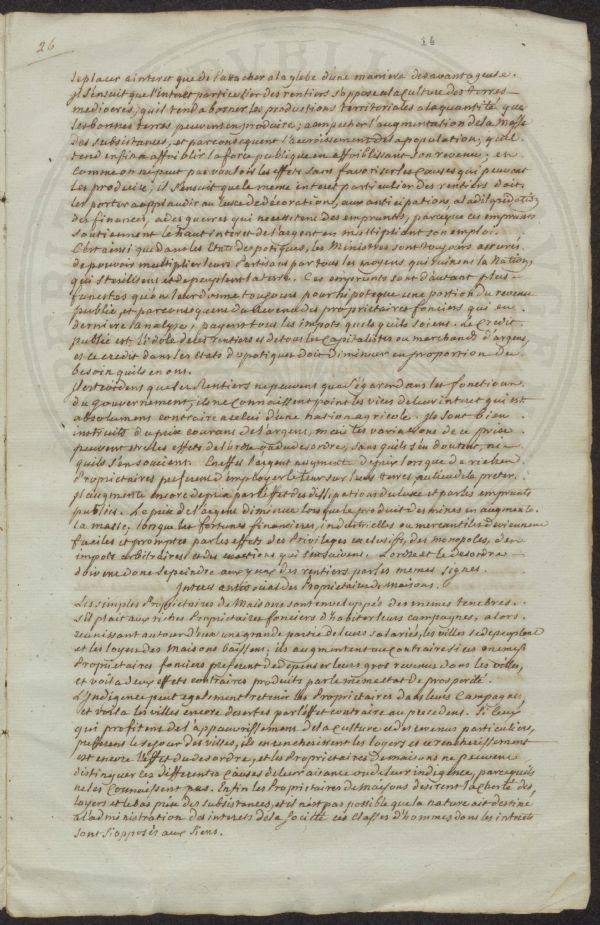 26
14
le placer a interet que de l'atacher a la glebe d'une maniere desavantageuse.
il s'ensuit que l'interet particulier des rentiers s'oppose a la culture des terres
mediocres; qu'il tend a borner les productions territoriales a la quantité que
les bonnes terres peuvent en produire; a empecher l'augmentation de la masse
des subsistances, et par consequent l'accroissement de la population; qu'il
tend enfin a affoiblir la force publique en affoiblissant son revenu; en
comme on ne peut pas vouloir les effets sans favoriser les causes qui peuvent
les produire; il s'ensuit que le meme interet particulier des rentiers doit
les porter a applaudir au luxe de décoration, aux anticipations, a la dilapidation
des finances, a des guerres qui necessitent des emprunts, parce que ces emprunts
soutiennent le haut interet de l'argent en multipliant son emploi.
C'est ainsi que dans les Etats despotiques, les Ministres sont toujours assurés
de pouvoir multiplier leurs Partisans par tous les moyens qui ruinent la Nation,
qui sterilisent et depeuplent la terre. Ces emprunts sont d'autant plus
funestes qu'on leur donne toujours pour hipoteque une portion du revenu
public, et par consequent du Revenu des proprietaires fonciers qui en
derniere analyse, payent tous les impots quels qu'ils soient. Le Credit
public est l'idole de les rentiers et de tous les Capitalistes ou marchands d'argent,
et le credit dans les Etats despotiques doit diminuer en proportion du
besoin qu'ils en ont.
Il est evident que les Rentiers ne peuvent que s'égarer dans les fonctions
du Gouvernement; ils ne connaissent point les vices de leur interet qui est
absolument contraire a celui d'une nation agricole. Ils sont bien
instruits du prix courant de l'argent, mais les variations de ce prix
peuvent etre les effets de l'ordre ou du desordre, sans qu'ils s'en doutent, ni
qu'ils s'en soucient. En effet l'argent augmente de prix lorsque de riches
Proprietaires preferent d'employer le leur sur leurs terres au lieu de le preter.
Il augmente encore de prix par l'effet des dissipations du luxe et par les emprunts
publics. Le prix de l'argent diminue lorsque le produit des mines en augmente
la masse, lorsque les fortunes financieres, industrielles ou mercantiles deviennent
faciles et promptes par les effets des Privileges exclusifs, des monopoles, des
impots arbitraires et des exactions qui s'ensuivent. L'ordre et le desordre
doivent donc se peindre aux yeux des rentiers par les memes signes.
Interet antisocial des Proprietaires de maisons.
Les simples Proprietaires de Maisons sont enveloppés des memes tenebres.
S'il plait aux riches Proprietaires fonciers d'habiter leurs campagnes, alors
reunissant autour d'eux une grande partie de leurs salariés, les villes se depeuplent
et les loyers des Maisons baissent; ils augmentent au contraire si ces memes
Proprietaires fonciers preferent de depenser leurs gros revenus dans les villes,
et voila deux effets contraires produits par le meme etat de prosperité.
L'indigence peut egalement retenir les Proprietaires dans leurs Campagnes,
et voila les villes encore desertes par l'effet contraire au precedent. Si ceux
qui profitent de l'appauvrissement de la culture et des revenus particuliers,
preferent le sejour des villes, ils encherissent les loyers et ce rencherissement
est encore l'effet du desordre, et les Proprietaires de maisons ne peuvent
distinguer ces differentes causes de leur aisance ou de leur indigence, parce qu'ils
ne les connaissent pas. Enfin les Proprietaires de maisons desirent la cherté des
loyers et le bas prix des subsistances, et il n'est pas possible que la nature ait destiné
a l'administration des interets de la Société ces classes d'hommes dont les interets
sont si opposés aux siens.